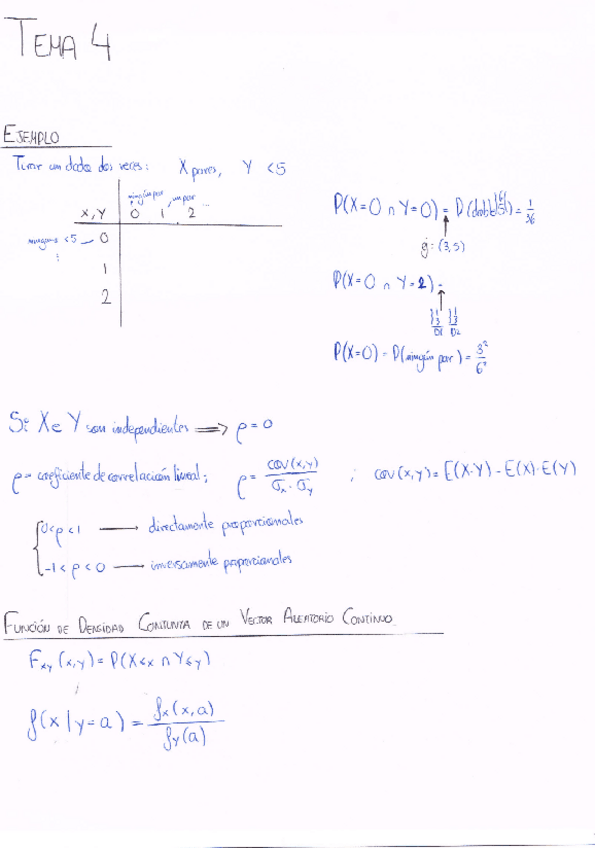 TEMA 4
EJEMPLO
Tirar un dado dos veces: X pares, Y <5
ningún par, un par ...
X,Y 0 1 2
ninguno <5 — 0
⋮
1
2
P(X=0 ∩ Y=0) = P( ) = 1/36
ej: (3,5)
P(X=0 ∩ Y=2) =
}1/3 }1/3
D1 D2
P(X=0) = P(ningún par) = 3²/6²
Si X e Y son independientes ⟹ ρ=0
ρ = coeficiente de correlación lineal; ρ = cov(x,y)/σx·σy ; cov(x,y) = E(X·Y) - E(X)·E(Y)
{0<ρ<1 ⟶ directamente proporcionales
-1<ρ<0 ⟶ inversamente proporcionales
FUNCIÓN DE DENSIDAD CONJUNTA DE UN VECTOR ALEATORIO CONTINUO
Fxy(x,y) = P(X≤x ∩ Y≤y)
f(x|y=a) = fx(x,a)/fy(a)